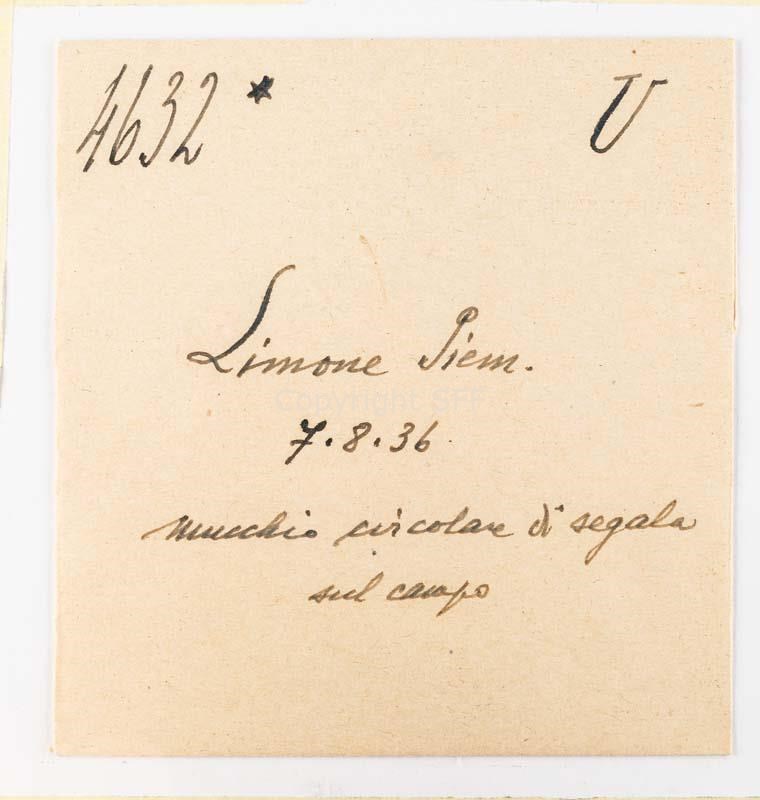 4632 * U
Limone Piem.
Copyright SFF
7.8.36
mucchio circolare di segala
sul campo